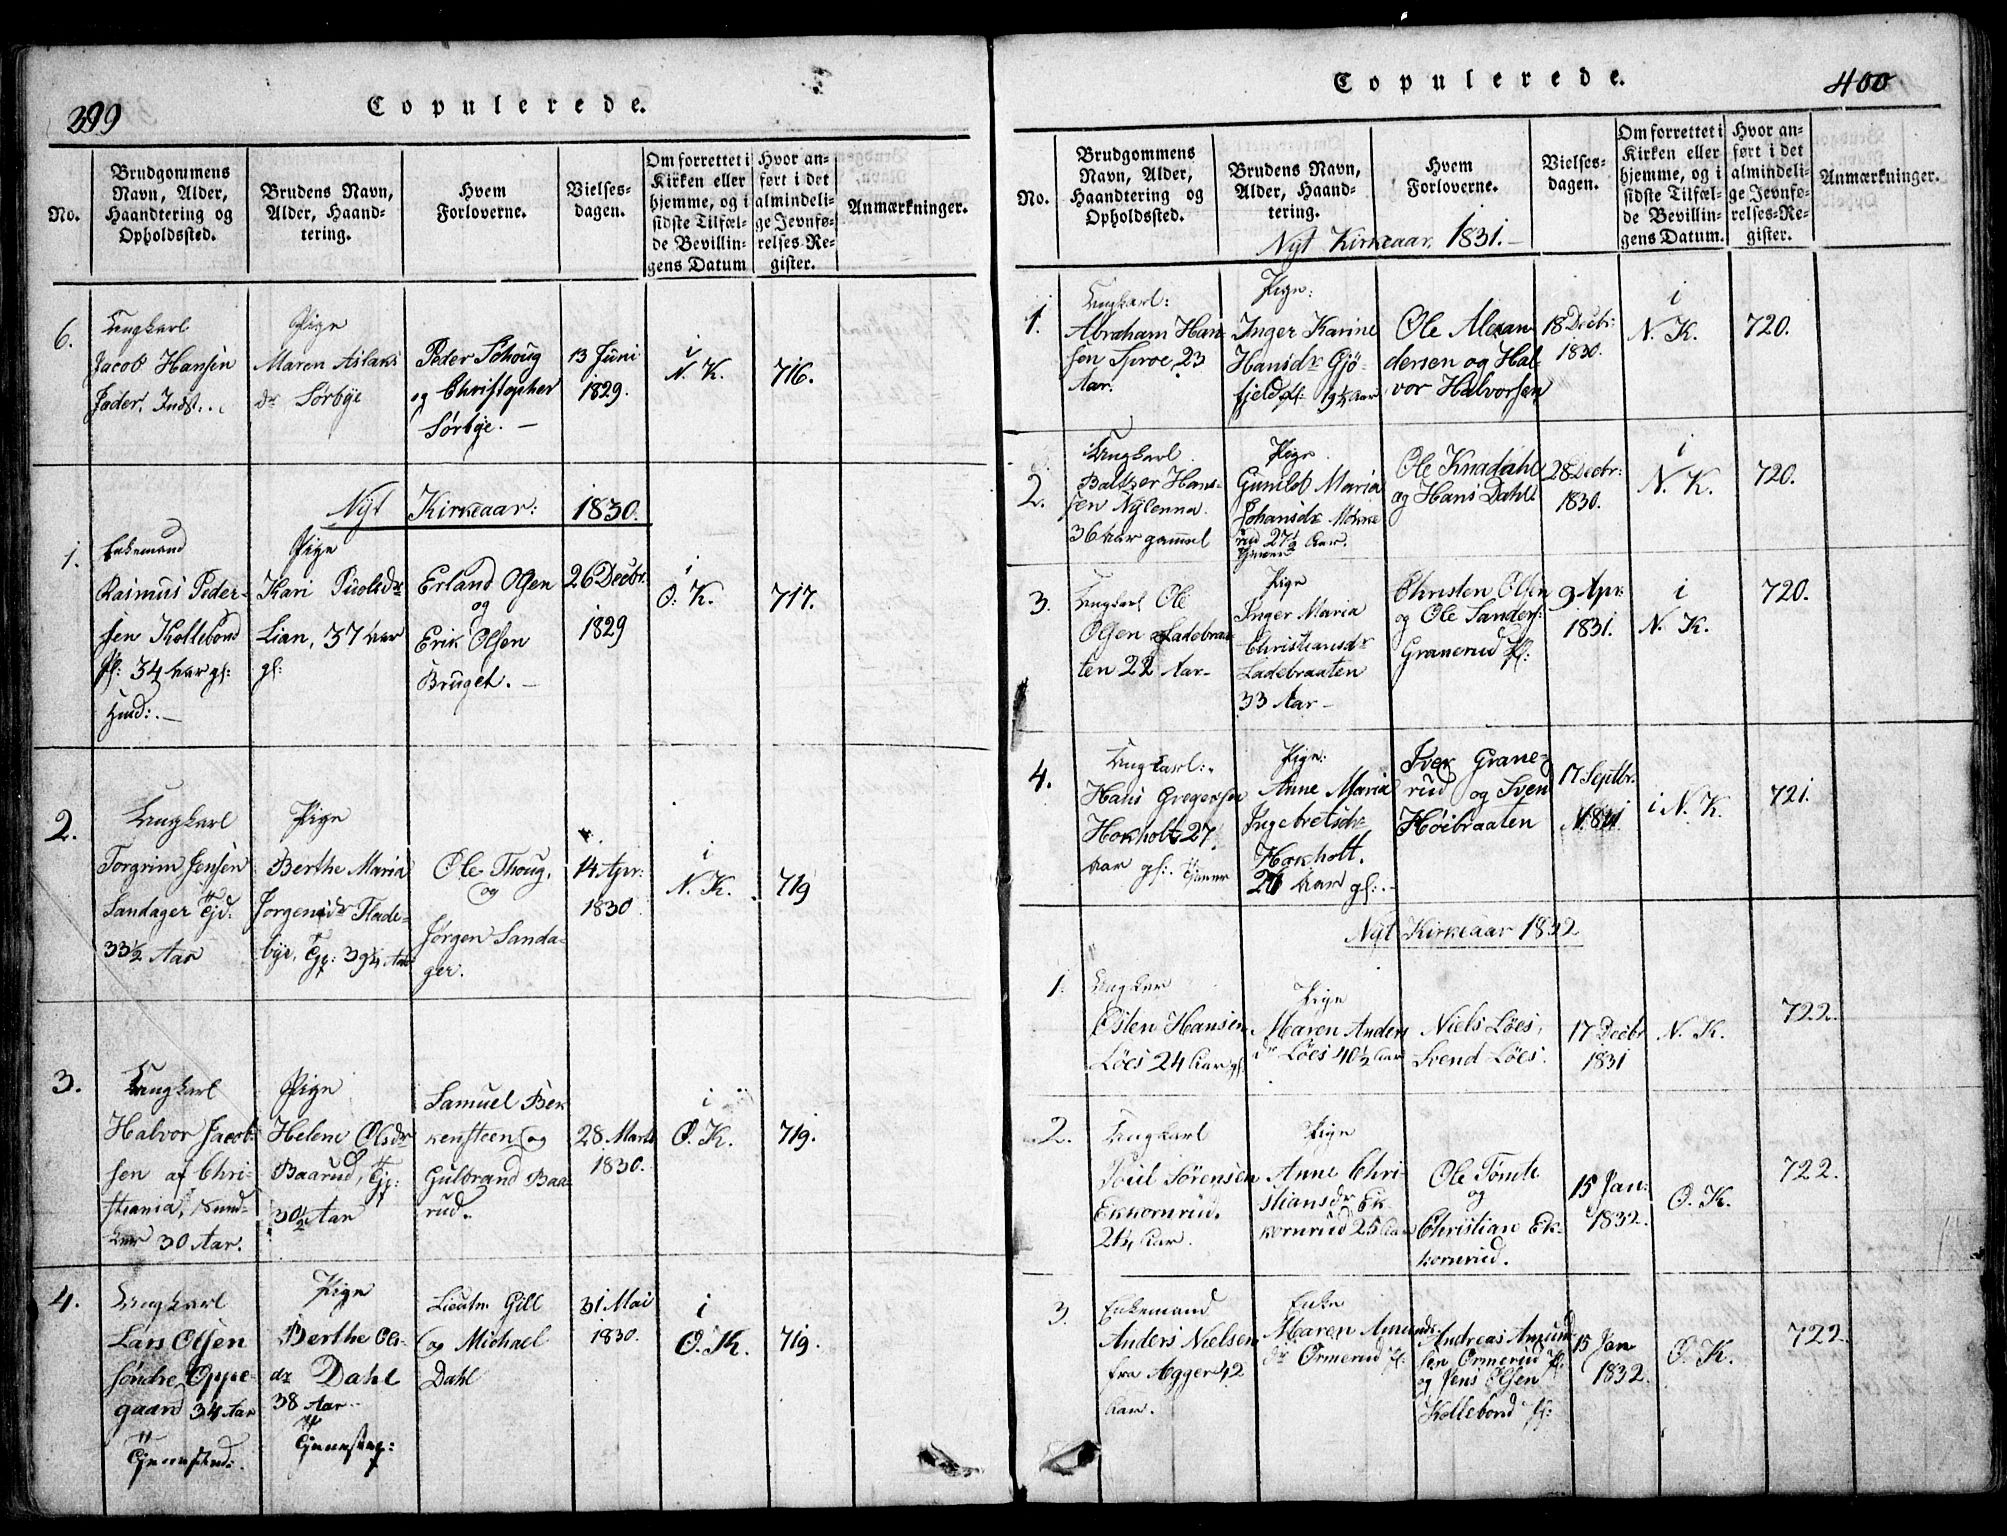 399
Copulerede.
No.
Brudgommens
Navn, Alder,
Haandtering og
Opholdssted.
Brudens Navn,
Alder, Haand-
tering.
Hvem
Forloverne.
Vielses-
dagen.
Om forrettet i
Kirken eller
hjemme, og i
sidste Tilfæl-
de Bevillin-
gens Datum
Hvor an-
ført i det
almindeli-
ge Jevnfø-
relses-Re-
gister.
Anmærkninger.
6.
Ungkarl
Jacob Hansen
Jader, Indst.
Pige
Maren Aslaks
dr Sørbye
Peder Schoug
og Christopher
Sørbye. —
13 Juni
1829.
i
N. K.
716.
Nyt Kirkeaar: 1830.
1.
Enkemand
Rasmus Peder-
sen Kollebond
Pl: 34 Aar gl:
Huusd: —
Pige
Kari Puolsdr
Lian, 37 Aar
gl:
Erland Olsen
og
Erik Olsen
Bruget. —
26 Decbr.
1829
i
O: K.
717.
2.
Ungkarl
Torgrim Jensen
Sandager Ejd.
33½ Aar
Pige
Berthe Maria
Jorgensdr Flade-
bye, Tjg: 39¼ Aar
Ole Thoug,
og
Jørgen Sanda-
ger.
14 Apr:
1830
i
N. K.
719
3.
Ungkarl
Halvor Jacob-
sen af Chri-
stiania,
30 Aar.
Pige
Helene Olsdr
Baarud, Tjg:
30½ Aar
Samuel Bek
kensteen og
Gulbrand Baa-
rud.
28 Marts
1830.
i
O. K.
719.
4.
Ungkarl
Lars Olsen
søndre Oppe-
gaard 34 Aar
Pige
Berthe Ols-
dr Dahl
38 Aar
Lieutn. Gill
og Michael
Dahl
31 Mai
1830.
i
O. K.
719.
400
Copulerede.
No.
Brudgommens
Navn, Alder,
Haandtering og
Opholdssted.
Brudens Navn,
Alder, Haand-
tering.
Hvem
Forloverne.
Vielses-
dagen.
Om forrettet i
Kirken eller
hjemme, og i
sidste Tilfæl-
de Bevillin-
gens Datum.
Hvor an-
ført i det
almindeli-
ge Jevnfø-
relses-Re-
gister.
Anmærkninger.
Nyt Kirkeaar, 1831. —
1.
Ungkarl:
Abraham Han-
sen Sproe, 23
Aar.
Pige:
Inger Karine
Hansdr Gjø-
fjeld pl: 19½ Aar
Ole Alexan
dersen og Hal-
vor Halvorsen
18 Decbr:
1830.
i
N. K.
720.
2.
Ungkarl
Baltzer Hans-
sen Nylenna.
36 Aar gammel
Pige.
Gunild Maria
Johansdr Mørke
rud 27½ Aar.
Ole Knadahl
og Hans Dahl
28 Decbr:
1830.
i
N. K.
720.
3.
Ungkarl Ole
Olsen Ladebraa-
ten 22 Aar-
Pige
Inger Maria
Christiansdr
Ladebraaten
33 Aar -
Christen Olsen
og Ole Sanders:
Granerud pl:
9 Apr:
1831.
i
N. K.
720.
4.
Ungkarl:
Hans Gregersen
Hokholt 27
Aar gl:. Tjener
Pige:
Anne Maria
Ingebretsdr,
Hokholt.
Aar gl: -
Iver Grane-
rud og Sven
Høibraaten
17 Septbr.
i N. K.
721.
Nyt Kirkeaar 1832
1.
Ungkar
Østen Hansen
Löes 24 Aar gl.
Pige
Maren Anders
dr Löes 40½ Aar
Niels Löes,
Svend Löes.
17 Decbr
1831
N. K.
722.
2.
Ungkarl
Poul Sörensen
Ekkornrud.
21¼ Aar.
Pige
Anne Chri-
stiansdr Ek
kornrud 25 Aar
Ole Tomte
og
Christian Ek-
kornrud.
15 Jan:
1832.
O. K.
722.
3.
Enkemand
Anders Nielsen
fra Agger 42
Aar.
Enke
Maren Amunds-
dr Ormerud pl:
Andreas Amund-
sen Ormerud pl:
og Jens Olsen
Kollebond pl:
15 Jan
1832.
O. K.
722.